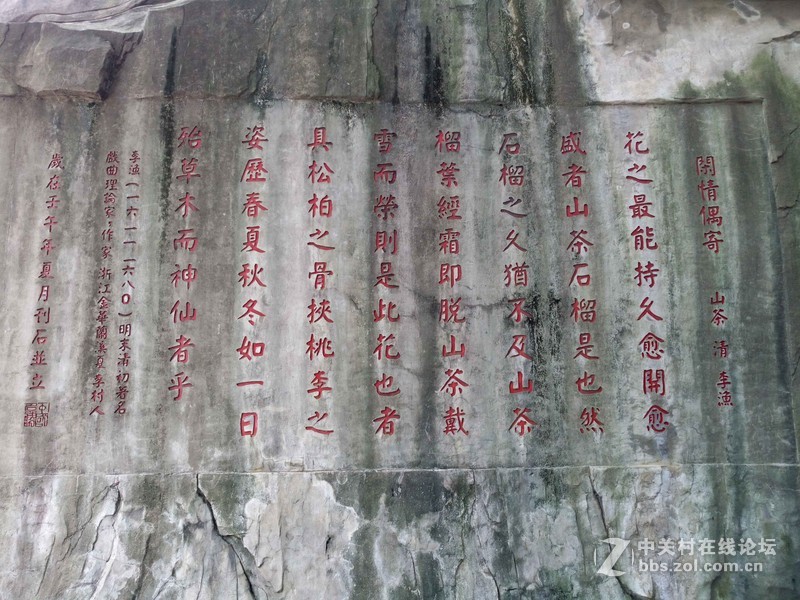 閑情偶寄 山茶 清 李漁
花之最能持久愈開愈
盛者山茶石榴是也然
石榴之久猶不及山茶
榴葉經霜即脱山茶戴
雪而榮則是此花也者
具松柏之骨挾桃李之
姿歷春夏秋冬如一日
殆草木而神仙者乎
李漁(一六一一一六八〇)明末清初著名
戲曲理論家、作家浙江金華蘭溪夏李村人
歲在壬午年夏月刊石並立
中关村在线论坛
bbs.zol.com.cn